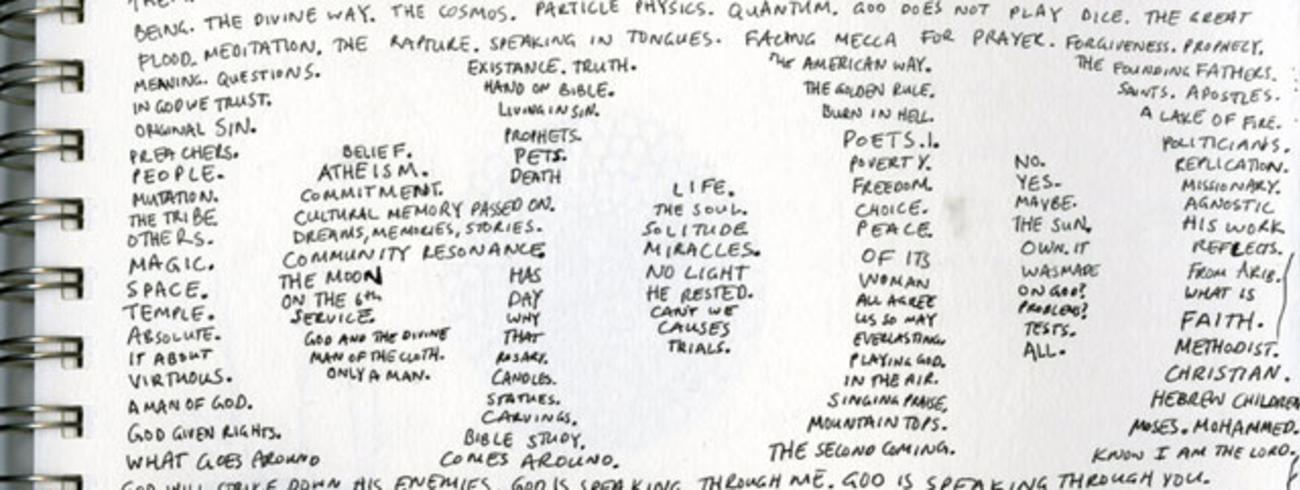 BEING. THE DIVINE WAY. THE COSMOS. PARTICLE PHYSICS. QUANTUM. GOD DOES NOT PLAY DICE. THE GREAT
FLOOD. MEDITATION. THE RAPTURE. SPEAKING IN TONGUES. FACING MECCA FOR PRAYER. FORGIVENESS. PROPHECY.
MEANING. QUESTIONS. EXISTANCE. TRUTH. THE AMERICAN WAY. THE FOUNDING FATHERS.
IN GOD WE TRUST. HAND ON BIBLE. THE GOLDEN RULE. SAINTS. APOSTLES.
ORIGINAL SIN. LIVING IN SIN. BURN IN HELL. A LAKE OF FIRE.
PREACHERS. BELIEF. PROPHETS. POETS.I. POLITICIANS.
PEOPLE. ATHEISM. PETS. POVERTY. NO. REPLICATION.
MUTATION. COMMITMENT. DEATH LIFE. FREEDOM. YES. MISSIONARY.
THE TRIBE CULTURAL MEMORY PASSED ON. THE SOUL. CHOICE. MAYBE. AGNOSTIC
OTHERS. DREAMS, MEMORIES, STORIES. SOLITUDE PEACE. THE SUN. HIS WORK
MAGIC. COMMUNITY RESONANCE. MIRACLES. OF ITS OWN. IT REFLECTS.
SPACE. THE MOON HAS NO LIGHT WOMAN WASMADE FROM ARIB.
TEMPLE. ON THE 6th DAY HE RESTED. ALL AGREE ON GOD? WHAT IS
ABSOLUTE. SERVICE. WHY CANT WE US SO MAY PROBLEMS? FAITH.
IT ABOUT GOD AND THE DIVINE THAT CAUSES EVERLASTING. TESTS. METHODIST.
VIRTUOUS. MAN OF THE CLOTH. ROSARY. TRIALS. PLAYING GOD. ALL. CHRISTIAN.
A MAN OF GOD. ONLY A MAN. CANDLES. IN THE AIR. HEBREW CHILDREN
GOD GIVEN RIGHTS. STATUES. SINGING PRAISE. MOSES. MOHAMMED.
CARVINGS. MOUNTAIN TOPS.
WHAT GOES AROUND BIBLE STUDY. THE SECOND COMING. KNOW I AM THE LORD.
COMES AROUND.
GOD WILL STRIKE DOWN HIS ENEMIES. GOD IS SPEAKING THROUGH ME. GOD IS SPEAKING THROUGH YOU.